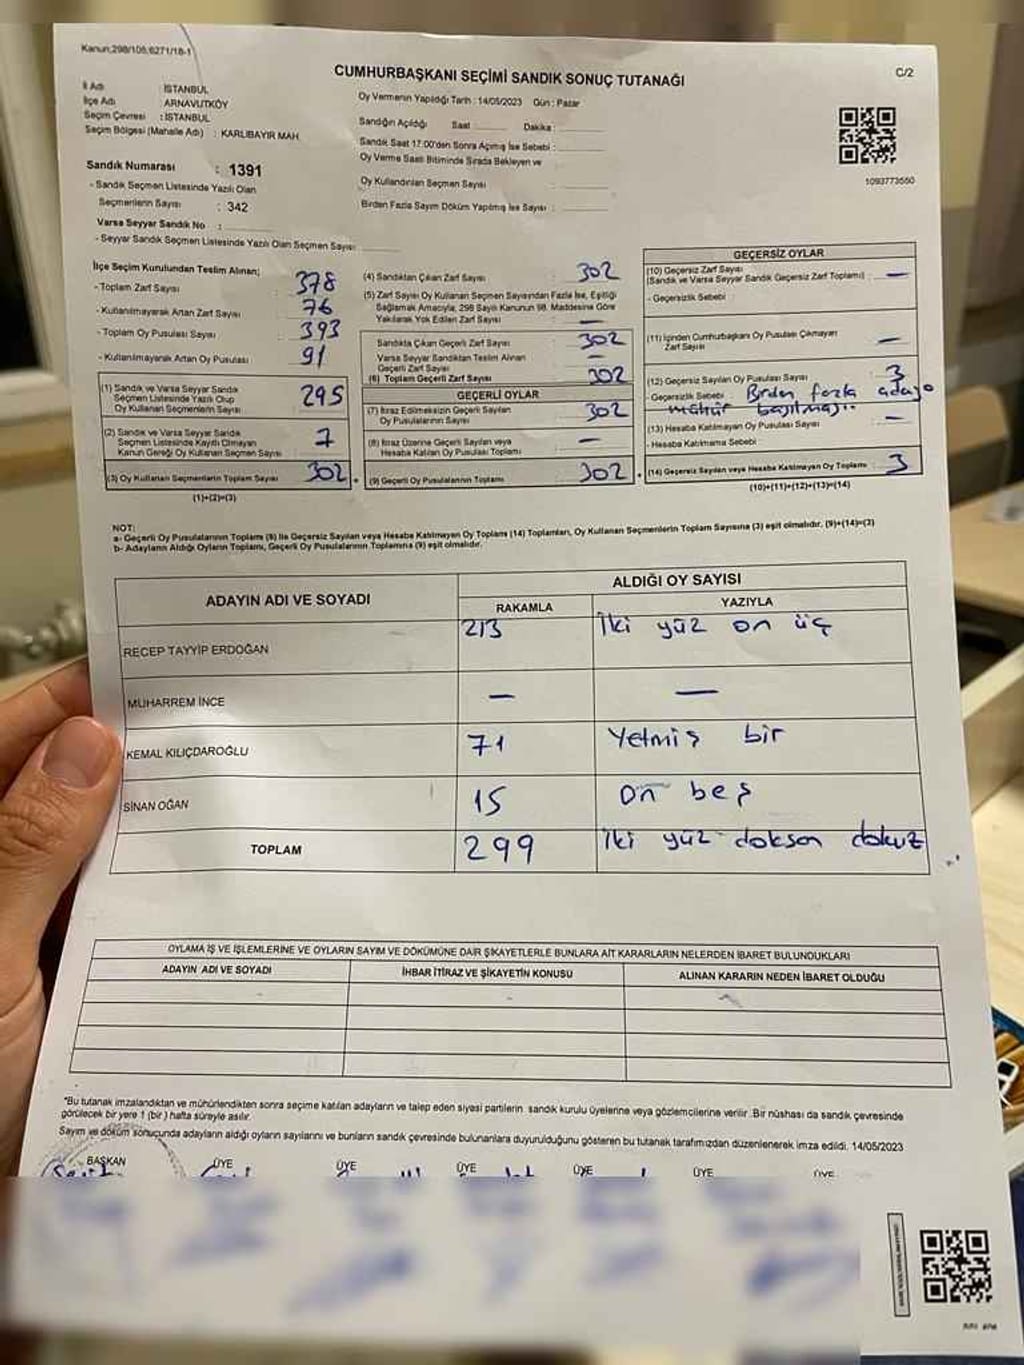 Kanun;298/105,6271/18-1
CUMHURBAŞKANI SEÇİMİ SANDIK SONUÇ TUTANAĞI
C/2
İl Adı : İSTANBUL
İlçe Adı : ARNAVUTKÖY
Seçim Çevresi : İSTANBUL
Seçim Bölgesi (Mahalle Adı) : KARLIBAYIR MAH
Sandık Numarası : 1391
- Sandık Seçmen Listesinde Yazılı Olan
Seçmenlerin Sayısı : 342
Varsa Seyyar Sandık No :
- Seyyar Sandık Seçmen Listesinde Yazılı Olan Seçmen Sayısı
Oy Vermenin Yapıldığı Tarih : 14/05/2023 Gün : Pazar
Sandığın Açıldığı Saat Dakika :
Sandık Saat 17:00'den Sonra Açılmış İse Sebebi :
Oy Verme Saati Bitiminde Sırada Bekleyen ve
Oy Kullandırılan Seçmen Sayısı :
Birden Fazla Sayım Döküm Yapılmış İse Sayısı :
1093773550
İlçe Seçim Kurulundan Teslim Alınan;
- Toplam Zarf Sayısı : 378
- Kullanılmayarak Artan Zarf Sayısı : 76
- Toplam Oy Pusulası Sayısı : 393
- Kullanılmayarak Artan Oy Pusulası : 91
(1) Sandık ve Varsa Seyyar Sandık
Seçmen Listesinde Yazılı Olup
Oy Kullanan Seçmenlerin Sayısı : 295
(2) Sandık ve Varsa Seyyar Sandık
Seçmen Listesinde Kayıtlı Olmayan
Kanun Gereği Oy Kullanan Seçmen Sayısı : 7
(3) Oy Kullanan Seçmenlerin Toplam Sayısı : 302
(1)+(2)=(3)
(4) Sandıktan Çıkan Zarf Sayısı : 302
(5) Zarf Sayısı Oy Kullanan Seçmen Sayısından Fazla İse, Eşitliği
Sağlamak Amacıyla, 298 Sayılı Kanunun 98. Maddesine Göre
Yakılarak Yok Edilen Zarf Sayısı : —
Sandıkta Çıkan Geçerli Zarf Sayısı : 302
Varsa Seyyar Sandıktan Teslim Alınan
Geçerli Zarf Sayısı : —
(6) Toplam Geçerli Zarf Sayısı : 302
GEÇERLİ OYLAR
(7) İtiraz Edilmeksizin Geçerli Sayılan
Oy Pusulasının Sayısı : 302
(8) İtiraz Üzerine Geçerli Sayılan veya
Hesaba Katılan Oy Pusulası Toplamı : —
(9) Geçerli Oy Pusulalarının Toplamı : 302
GEÇERSİZ OYLAR
(10) Geçersiz Zarf Sayısı
(Sandık ve Varsa Seyyar Sandık Geçersiz Zarf Toplamı) : —
- Geçersizlik Sebebi :
(11) İçinden Cumhurbaşkanı Oy Pusulası Çıkmayan
Zarf Sayısı : —
(12) Geçersiz Sayılan Oy Pusulası Sayısı : 3
- Geçersizlik Sebebi : Birden fazla adaya
mühür basılması
(13) Hesaba Katılmayan Oy Pusulası Sayısı : —
- Hesaba Katılmama Sebebi
(14) Geçersiz Sayılan veya Hesaba Katılmayan Oy Toplamı : 3
(10)+(11)+(12)+(13)=(14)
NOT:
a- Geçerli Oy Pusulalarının Toplamı (9) ile Geçersiz Sayılan veya Hesaba Katılmayan Oy Toplamı (14) Toplamları, Oy Kullanan Seçmenlerin Toplam Sayısına (3) eşit olmalıdır. (9)+(14)=(3)
b- Adayların Aldığı Oyların Toplamı, Geçerli Oy Pusulalarının Toplamına (9) eşit olmalıdır.
ADAYIN ADI VE SOYADI
ALDIĞI OY SAYISI
RAKAMLA YAZIYLA
RECEP TAYYİP ERDOĞAN 213 İki yüz on üç
MUHARREM İNCE — —
KEMAL KILIÇDAROĞLU 71 Yetmiş bir
SİNAN OĞAN 15 On beş
TOPLAM 299 İki yüz doksan dokuz
OYLAMA İŞ VE İŞLEMLERİNE VE OYLARIN SAYIM VE DÖKÜMÜNE DAİR ŞİKAYETLERLE BUNLARA AİT KARARLARIN NELERDEN İBARET BULUNDUKLARI
ADAYIN ADI VE SOYADI İHBAR İTİRAZ VE ŞİKAYETİN KONUSU ALINAN KARARIN NEDEN İBARET OLDUĞU
*Bu tutanak imzalandıktan ve mühürlendikten sonra seçime katılan adayların ve talep eden siyasi partilerin sandık kurulu üyelerine veya gözlemcilerine verilir. Bir nüshası da sandık çevresinde
görülecek bir yere 1 (bir) hafta süreyle asılır.
Sayım ve döküm sonucunda adayların aldığı oyların sayılarını ve bunların sandık çevresinde bulunanlara duyurulduğunu gösteren bu tutanak tarafımızdan düzenlenerek imza edildi. 14/05/2023
BAŞKAN ÜYE ÜYE ÜYE ÜYE ÜYE ÜYE